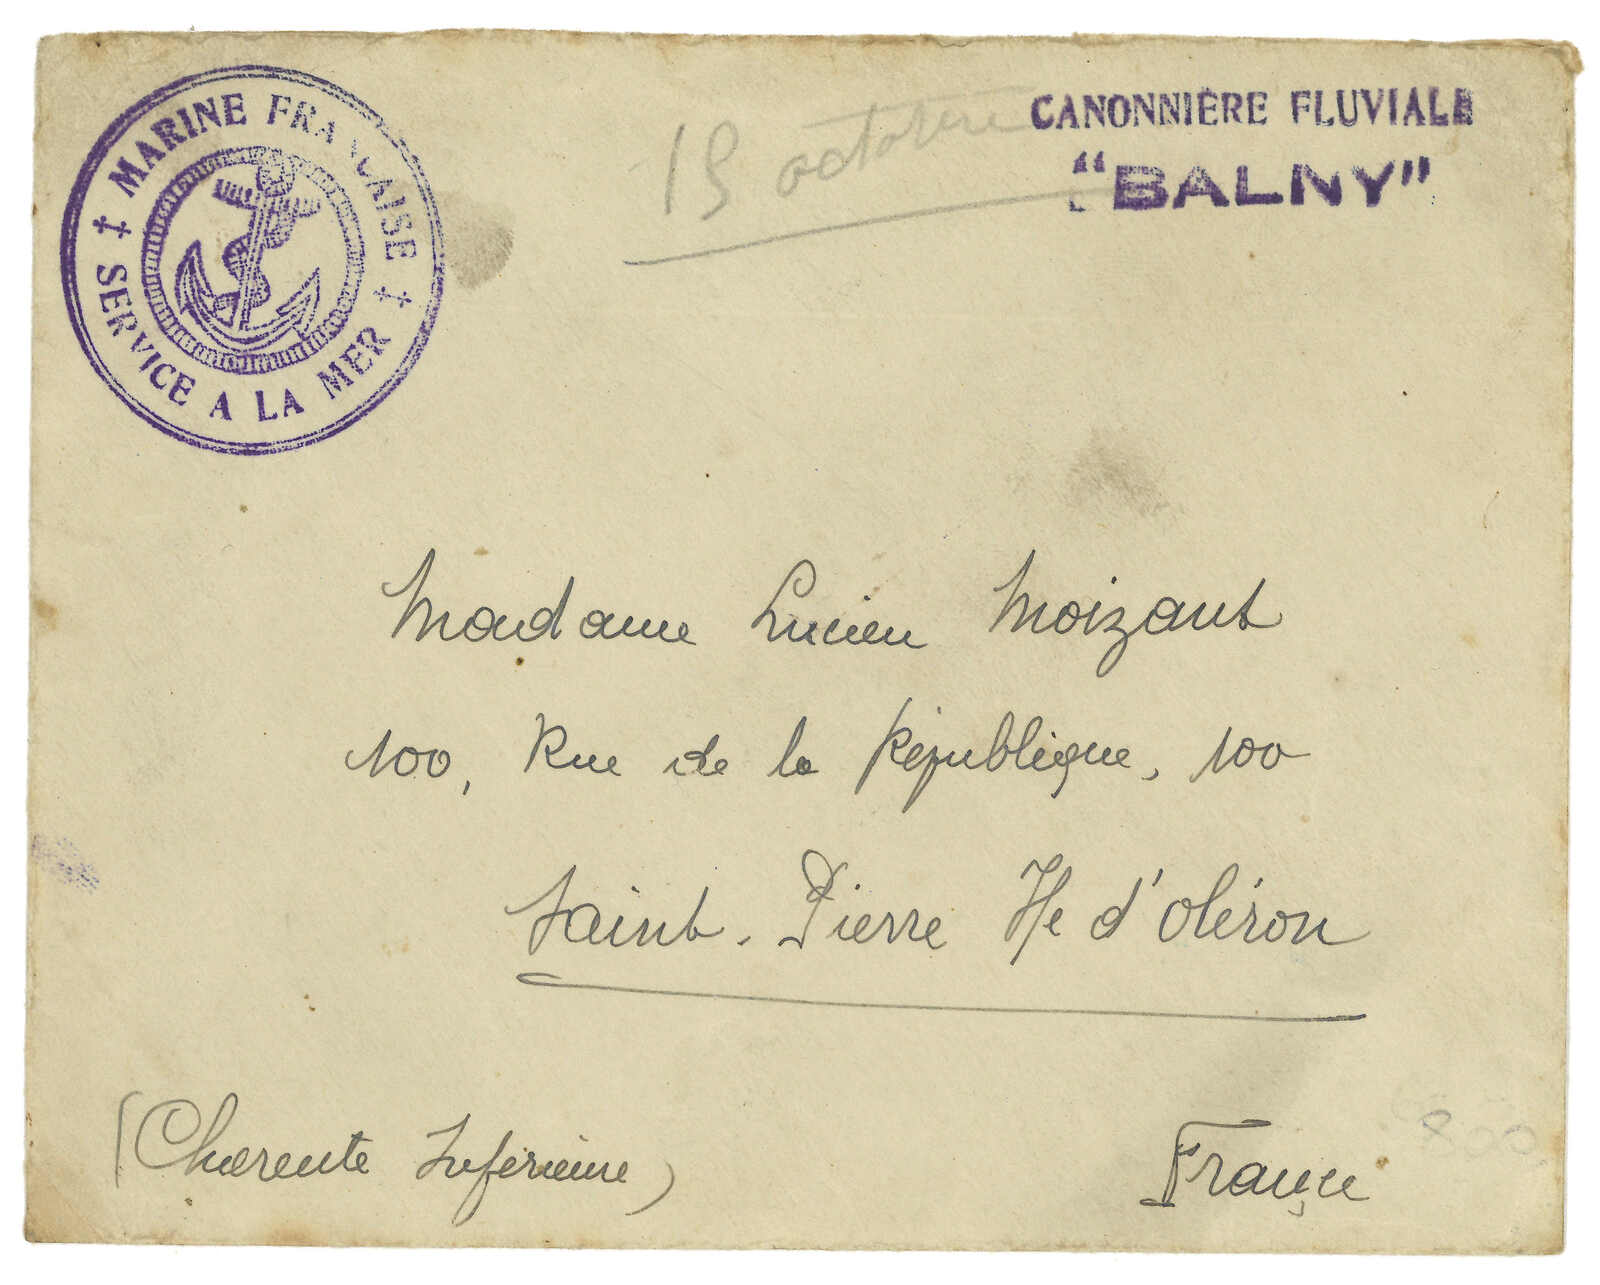 MARINE FRANÇAISE
SERVICE A LA MER
19 octobre
CANONNIÈRE FLUVIALE
"BALNY"
Madame Lucien Moizant
100, Rue de la République, 100
Saint-Pierre Ile d'oléron
(Charente Inférieure)
France
800